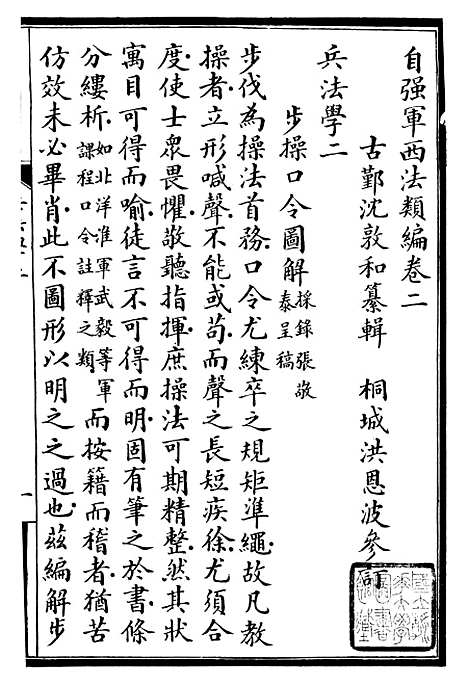 自强軍西法類編卷二
古鄞沈敦和纂輯　桐城洪恩波參訂
兵法學二
步操口令圖解採錄張敬泰呈稿
步伐為操法首務口令尤練卒之規矩準繩故凡教
操者立形喊聲不能或茍而聲之長短疾徐尤須合
度使士衆畏懼敬聽指揮庶操法可期精整然其狀
寓目可得而喻徒言不可得而明固有筆之於書條
分縷析如北洋淮軍武毅等軍課程口令註釋之類而按籍而稽者猶苦
仿效未必畢肖此不圖形以明之之過也茲編解步